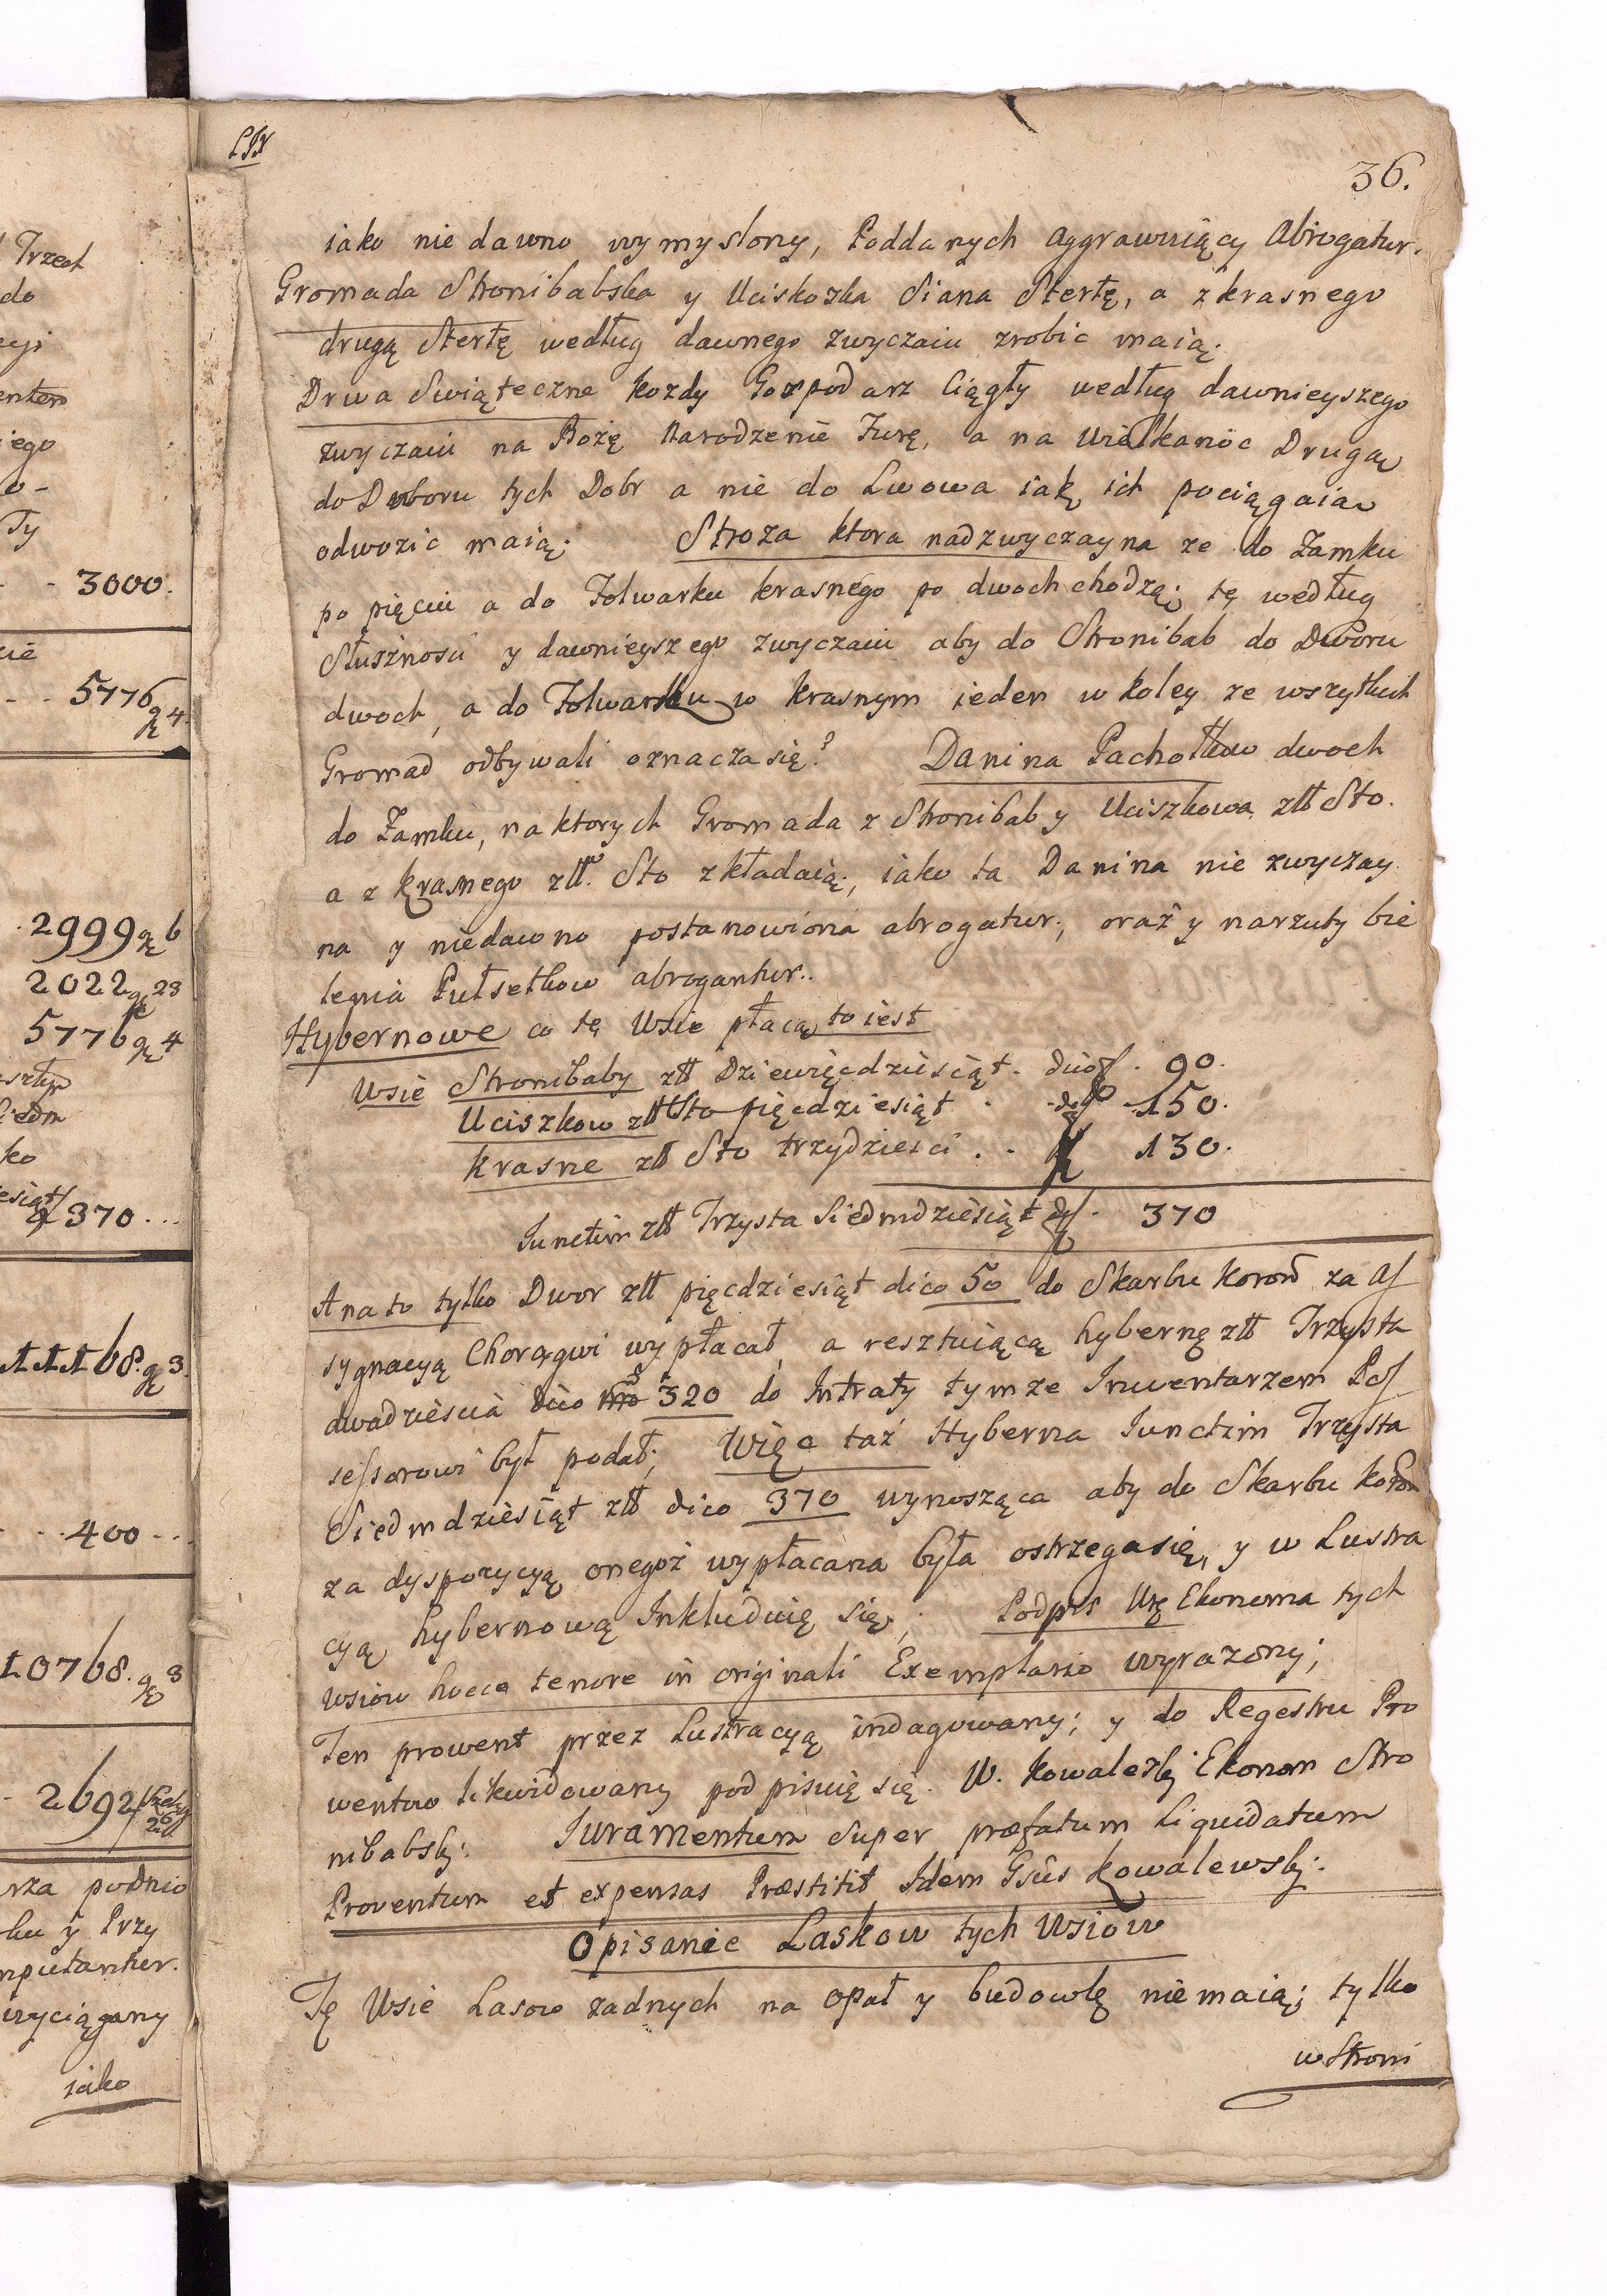 Trzech
do
entem
iego
o-
Ty
- - 3000.
cie
- - 5776 g 4.
. 2999 g 6
2022 g 23
5776 g 4
siedm
ko
370...
11168. g 3.
- - . 400 - - .
10768. g 3
- 2692
rza podnio
ku y Przy
mputantur.
wyciągany
iako
36.
iako nie dawno wymyslony, Poddanych aggrawuiący Abrogatur.
Gromada Stronibabska y Uciskozka Siana Stertę, a z krasnego
drugą Stertę według dawnego zwyczaiu zrobic maią.
Drwa Swiąteczne kozdy Gozpodarz Ciągły według dawnieyszego
zwyczaiu na Bożę Narodzenie Furę, a na Wielkanoc Drugą
do Dworu tych Dobr a nie do Lwowa iak ich pociągaią
odwozic maią; Stroza ktora nadzwyczayna ze do Zamku
po pięciu a do Folwarku krasnego po dwoch chodzą; tę według
Słusznosci y dawnieyszego zwyczaiu aby do Stronibab do Dworu
dwoch, a do Folwarku w krasnym ieden w koley ze wszytkich
Gromad odbywali oznacza się? Danina Pachołkow dwoch
do Zamku, na ktorych Gromada z Stronibab y Uciszkowa złł Sto.
a z krasnego złł. Sto zkładaią; iako ta Danina nie zwyczay
na y niedawno postanowiona abrogatur; oraz y narzuty bie
lenia Putsetkow abrogantur..
Hybernowe co tę Wsie płacą to iest
Wsie Stronibaby złł Dziewięcdziesiąt. dico . 90.
Uciszkow złł Sto pięcdziesiąt . - dico - 150.
krasne złł Sto trzydziesci . . 130.
Iunctim złł Trzysta Siedmdziesiąt 370
A na to tylko Dwor złł pięcdziesiąt dico 50 do Skarbu koron za as
sygnacyą Chorągwi wypłacał, a resztuiącą hybernę złł Trzysta
dwadziescia dico nro 320 do Intraty tymze Inwentarzem Pos
sessorowi był podał; Więc taż Hyberna Iunctim Trzysta
Siedmdziesiąt złł dico 370 wynosząca aby do Skarbu koron
za dyspozycyą onegoż wypłacana była ostrzega się, y w Lustra
cyą hybernową Inkluduię się; Podpis Urę Ekonoma tych
wsiow hocce tenore in originali Exemplario wyrazony;
Ten prowent przez Lustracyą indagowany; y do Regestru Pro
wentow likwidowany podpisuię się. W. kowalezky Ekonom Stro
nibabsky: Iuramentum super præfatum Liquidatum
Proventum et expensas Præstitit Idem Gsus kowalewsky:
Opisanie Laskow tych Wsiow
Tę Wsie Lasow zadnych na opał y budowlę nie maią; tylko
w Stroni